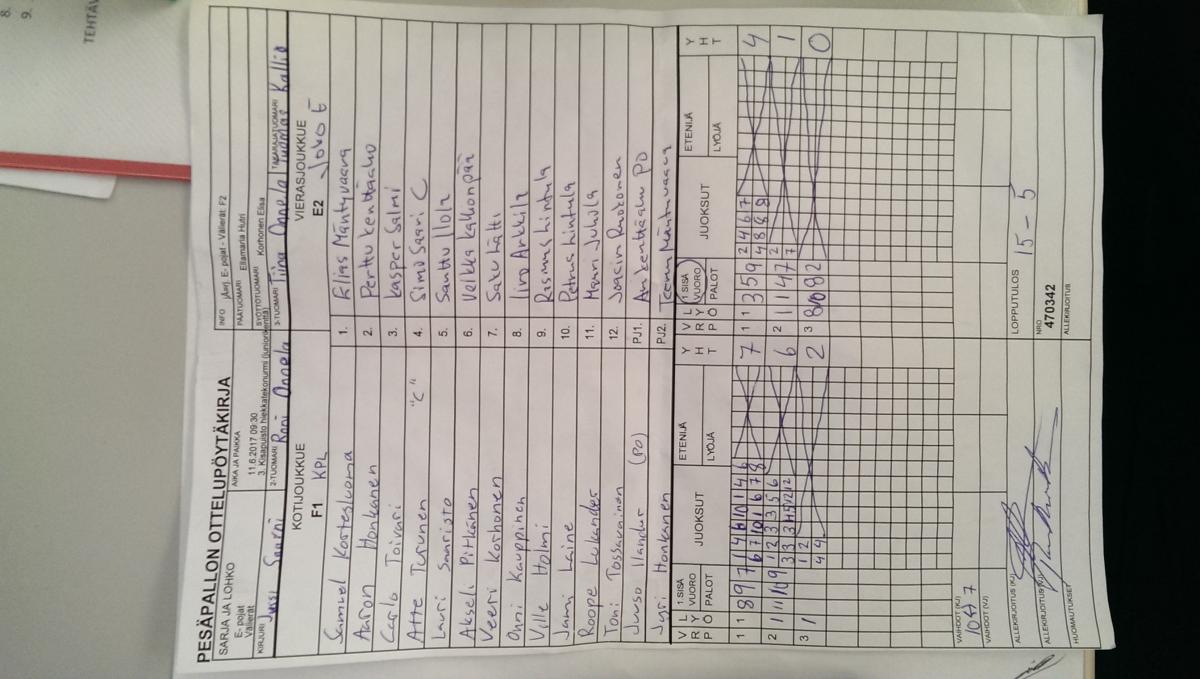 8.
9.
TEHTÄV
PESÄPALLON OTTELUPÖYTÄKIRJA
SARJA JA LOHKO
E- pojat
Välierät
AIKA JA PAIKKA
11.6.2017 09:30
3. Kisapuisto hiekkatekonurmi (juniorikenttä)
INFO
E- pojat - Välierät F2
PÄÄTUOMARI
Ellamaria Hutri
SYÖTTÖTUOMARI
Korhonen Elisa
KIRJURI Jussi Saarni
2-TUOMARI Roni Onnela
3-TUOMARI Tiina Onnela
TAKARAJATUOMARI Tuomas Kallio
KOTIJOUKKUE
F1 KPL
VIERASJOUKKUE
E2 Jokot
Samuel Kortesluoma 1. Elias Mäntyvaara
Aaron Honkanen 2. Perttu Kenttäaho
Carlo Toivari 3. Kasper Salmi
Atte Turunen "C" 4. Simo Saari C
Lauri Saaristo 5. Santtu Ilola
Akseli Pitkänen 6. Veikka Kalkonpää
Veeti Korhonen 7. Saku Lätti
Onni Kauppinen 8. Iiro Arkkila
Ville Holmi 9. Rasmus Hintula
Jami Laine 10. Petrus Hintula
Roope Lukander 11. Mauri Juhola
Toni Tossavainen 12. Joacin Ruokonen
Juuso Ilander (PO) PJ1. Ari Kenttäaho PO
Jyri Honkanen PJ2. Teemu Mäntyvaara
V R P L Y Ö 1 SISÄ VUORO PALOT JUOKSUT ETENIJÄ LYÖJÄ Y H T
V R P L Y Ö 1 SISÄ VUORO PALOT JUOKSUT ETENIJÄ LYÖJÄ Y H T
1 1 8 9 7 1 4 6 10 1 4 6 7
6 7 10 1 6 7 8
1 1 3 5 9 2 4 6 7 4
4 8 8 8
2 1 11 10 9 1 2 3 3 5 6 6
2 1 1 4 7 2 1
7
3 1 1 2 2
4 4
3 8 2 0
VAIHDOT (KJ)
10 7
VAIHDOT (VJ)
LOPPUTULOS 15 - 5
ALLEKIRJOITUS (KJ)
NRO
470342
ALLEKIRJOITUS (VJ)
ALLEKIRJOITUS
HUOMAUTUKSET